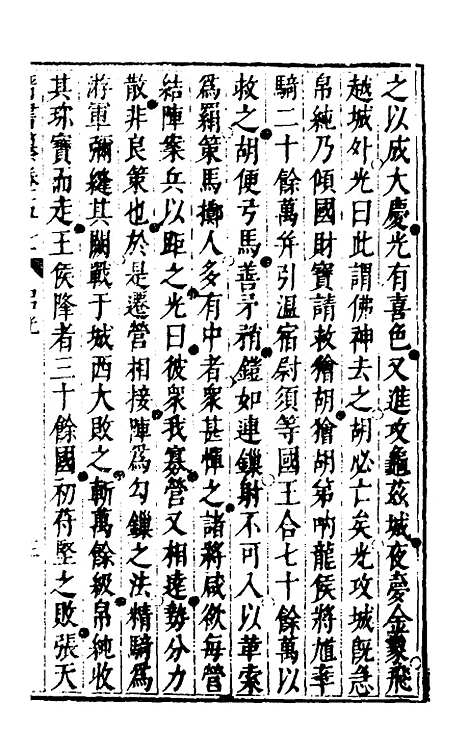 之以成大慶光有喜色又進攻龜茲城夜夢金象飛
越城外光曰此謂佛神去之胡必亡矣光攻城既急
帛純乃傾國財寶請救獪胡獪胡弟吶龍侯將馗率
騎二十餘萬并引温宿尉須等國王合七十餘萬以
救之胡便弓馬善矛矟鎧如連鏁射不可入以革索
為羂策馬擲人多有中者衆甚憚之諸將咸欲每營
結陣案兵以距之光曰彼衆我寡營又相遠勢分力
散非良策也於是遷營相接陣為勾鏁之法精騎為
游軍彌縫其闕戰于城西大敗之斬萬餘級帛純收
其珍寶而走王侯降者三十餘國初苻堅之敗張天